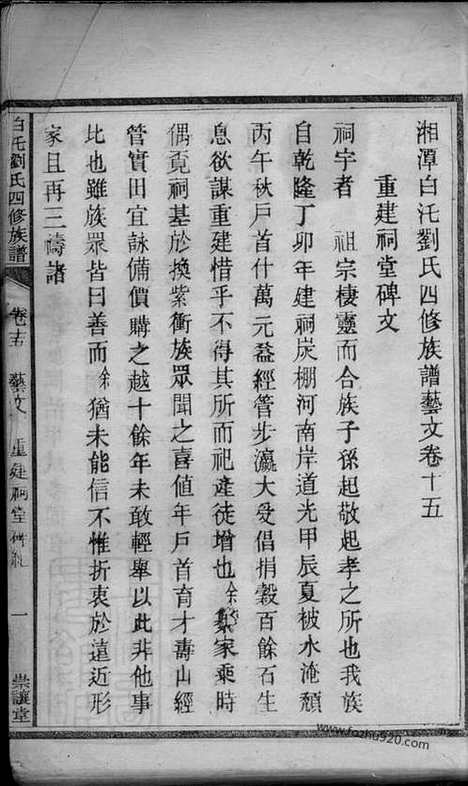 湘潭白汑劉氏四修族譜藝文卷十五
重建祠堂碑文
祠宇者　祖宗棲靈而合族子孫起敬起孝之所也我族
自乾隆丁卯年建祠炭棚河南岸道光甲辰夏被水淹頽
丙午秋戶首什萬元益經管步瀛大受倡捐穀百餘石生
息欲謀重建惜乎不得其所而祀產徒增也余家乘時
偶覓祠基於換紫衝族眾聞之喜值年戶首育才壽山經
管實田宜詠備價購之越十餘年未敢輕舉以此非他事
比也雖族眾皆曰善而余猶未能信不惟折衷於遠近形
家且再三禱諸
白汑劉氏四修族譜
卷十五　藝文　重建祠堂碑
一
崇讓堂
www.fozhu920.com